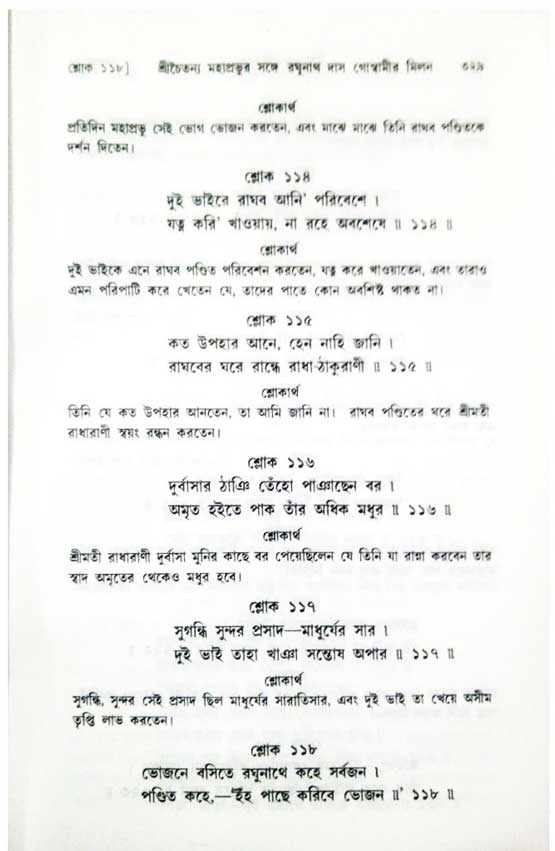 শ্লোক ১১৮] শ্রীচৈতন্য মহাপ্রভুর সঙ্গে রঘুনাথ দাস গোস্বামীর মিলন ৩২৯
শ্লোকার্থ
প্রতিদিন মহাপ্রভু সেই ভোগ ভোজন করতেন, এবং মাঝে মাঝে তিনি রাঘব পণ্ডিতকে
দর্শন দিতেন।
শ্লোক ১১৪
দুই ভাইরে রাঘব আনি' পরিবেশে ।
যত্ন করি' খাওয়ায়, না রহে অবশেষে ॥ ১১৪ ॥
শ্লোকার্থ
দুই ভাইকে এনে রাঘব পণ্ডিত পরিবেশন করতেন, যত্ন করে খাওয়াতেন, এবং তারাও
এমন পরিপাটি করে খেতেন যে, তাদের পাতে কোন অবশিষ্ট থাকত না।
শ্লোক ১১৫
কত উপহার আনে, হেন নাহি জানি ।
রাঘবের ঘরে রান্ধে রাধা-ঠাকুরাণী ॥ ১১৫ ॥
শ্লোকার্থ
তিনি যে কত উপহার আনতেন, তা আমি জানি না। রাঘব পণ্ডিতের ঘরে শ্রীমতী
রাধারাণী স্বয়ং রন্ধন করতেন।
শ্লোক ১১৬
দুর্বাসার ঠাঞি তেঁহো পাঞাছেন বর ।
অমৃত হইতে পাক তাঁর অধিক মধুর ॥ ১১৬ ॥
শ্লোকার্থ
শ্রীমতী রাধারাণী দুর্বাসা মুনির কাছে বর পেয়েছিলেন যে তিনি যা রান্না করবেন তার
স্বাদ অমৃতের থেকেও মধুর হবে।
শ্লোক ১১৭
সুগন্ধি সুন্দর প্রসাদ—মাধুর্যের সার ।
দুই ভাই তাহা খাঞা সন্তোষ অপার ॥ ১১৭ ॥
শ্লোকার্থ
সুগন্ধি, সুন্দর সেই প্রসাদ ছিল মাধুর্যের সারাতিসার, এবং দুই ভাই তা খেয়ে অসীম
তৃপ্তি লাভ করতেন।
শ্লোক ১১৮
ভোজনে বসিতে রঘুনাথে কহে সর্বজন ।
পণ্ডিত কহে,—'ইঁহ পাছে করিবে ভোজন ॥' ১১৮ ॥